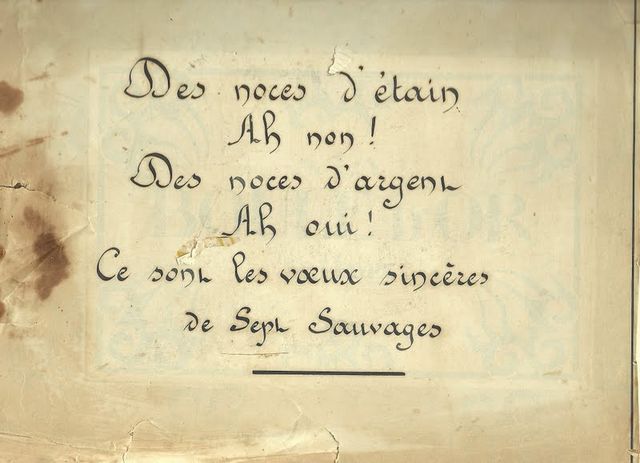 Des noces d'étain
Ah non!
Des noces d'argent
Ah oui!
Ce sont les vœux sincères
de Sept Sauvages